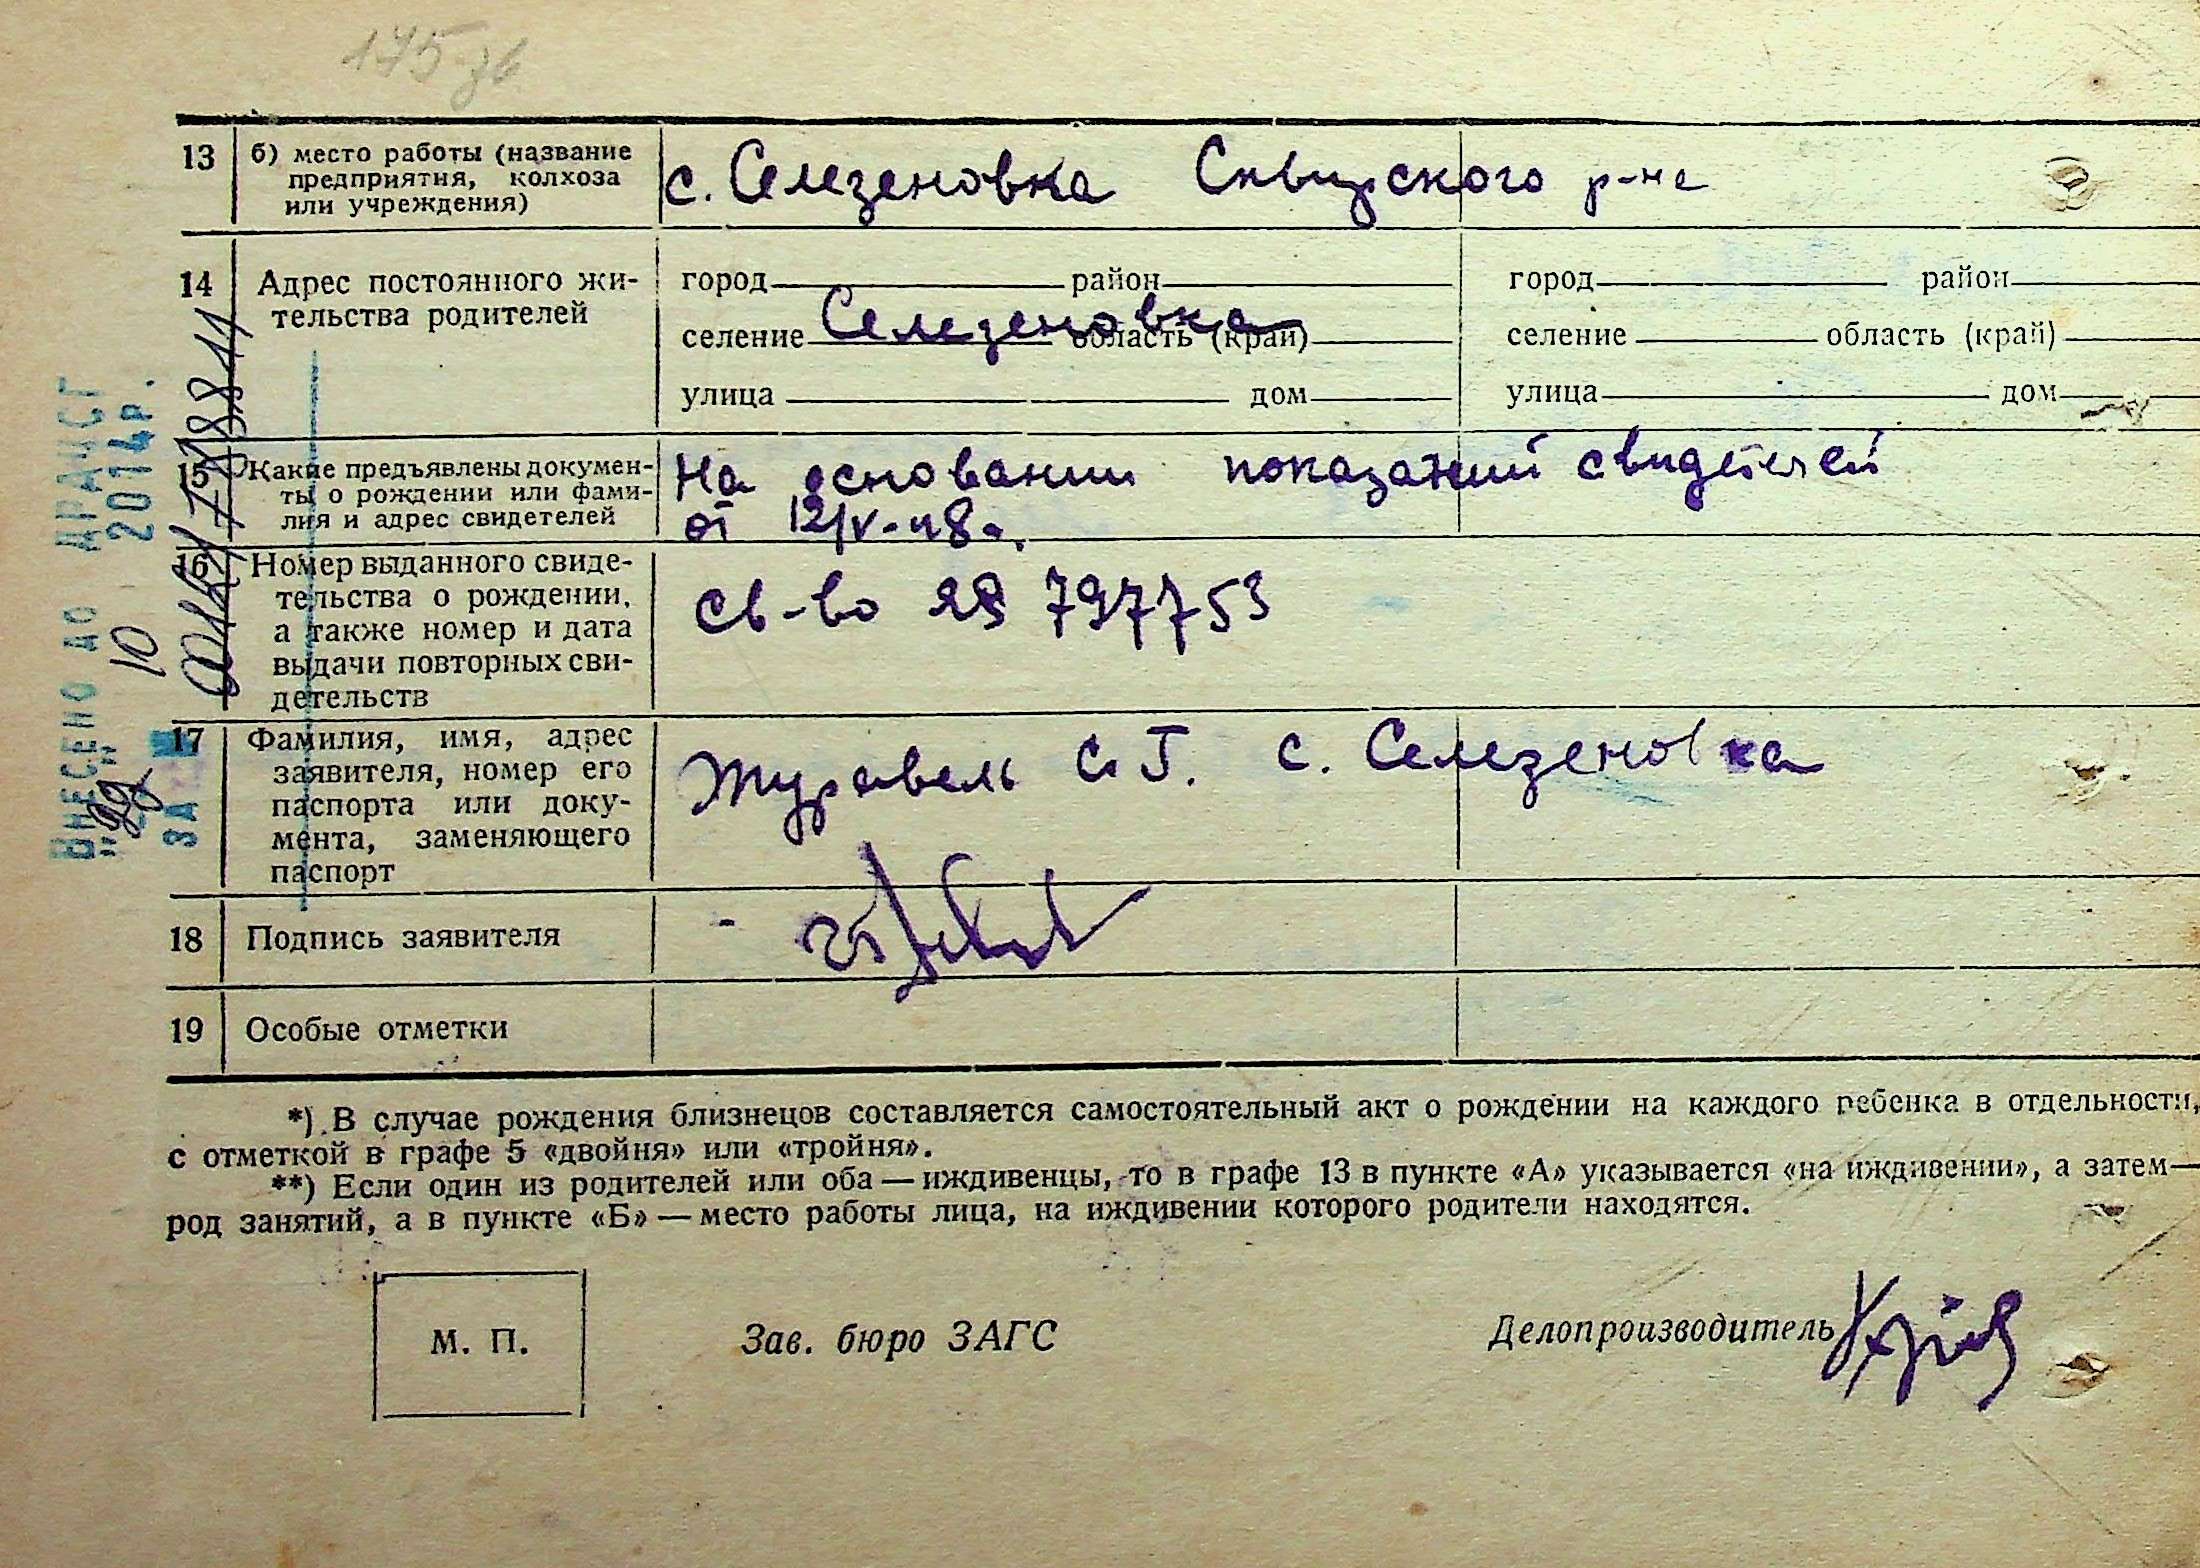 175 зв
13 б) место работы (название
предприятия, колхоза
или учреждения)
с. Селезеновка Сквирского р-на
14 Адрес постоянного жи-
тельства родителей
город район
селение Селезеновка область (край)
улица дом
город район
селение область (край)
улица дом
15 Какие предъявлены докумен-
ты о рождении или фами-
лия и адрес свидетелей
На основании показаний свидетелей
от 12/V-48г.
16 Номер выданного свиде-
тельства о рождении,
а также номер и дата
выдачи повторных сви-
детельств
Св-во 797753
17 Фамилия, имя, адрес
заявителя, номер его
паспорта или доку-
мента, заменяющего
паспорт
Журавель С. Г. с. Селезеновка
18 Подпись заявителя
19 Особые отметки
*) В случае рождения близнецов составляется самостоятельный акт о рождении на каждого ребенка в отдельности,
с отметкой в графе 5 «двойня» или «тройня».
**) Если один из родителей или оба — иждивенцы, то в графе 13 в пункте «А» указывается «на иждивении», а затем —
род занятий, а в пункте «Б» — место работы лица, на иждивении которого родители находятся.
М. П.
Зав. бюро ЗАГС
Делопроизводитель
ВНЕСЕНО ДО ДРАЦСГ
10 2014р.
ЗА